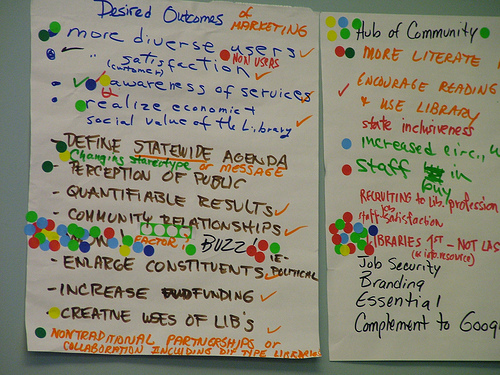 Desired Outcomes of MARKETING
more diverse users
NON USERS
" satisfaction
(customer)
awareness of services
realize economic +
social value of the Library
- DEFINE STATEWIDE AGENDA
Changing stereotype or MESSAGE
- PERCEPTION OF PUBLIC
- QUANTIFIABLE RESULTS
- COMMUNITY RELATIONSHIPS
FACTOR! BUZZ
- ENLARGE CONSTITUENTS IE- POLITICAL
- INCREASE FUNDING
- CREATIVE USES OF LIB'S
NONTRADITIONAL PARTNERSHIPS or
COLLABORATION INCLUDING DIF TYPE LIBRARIES
Hub of Community
MORE LITERATE
ENCOURAGE READING
& USE LIBRARY
state inclusiveness
increased circ.,
staff in
buy
RECRUITING to Lib. profession
staff job satisfaction
LIBRARIES 1ST - NOT LAS
(as info. resource)
Job Security
Branding
Essential
Complement to Goog